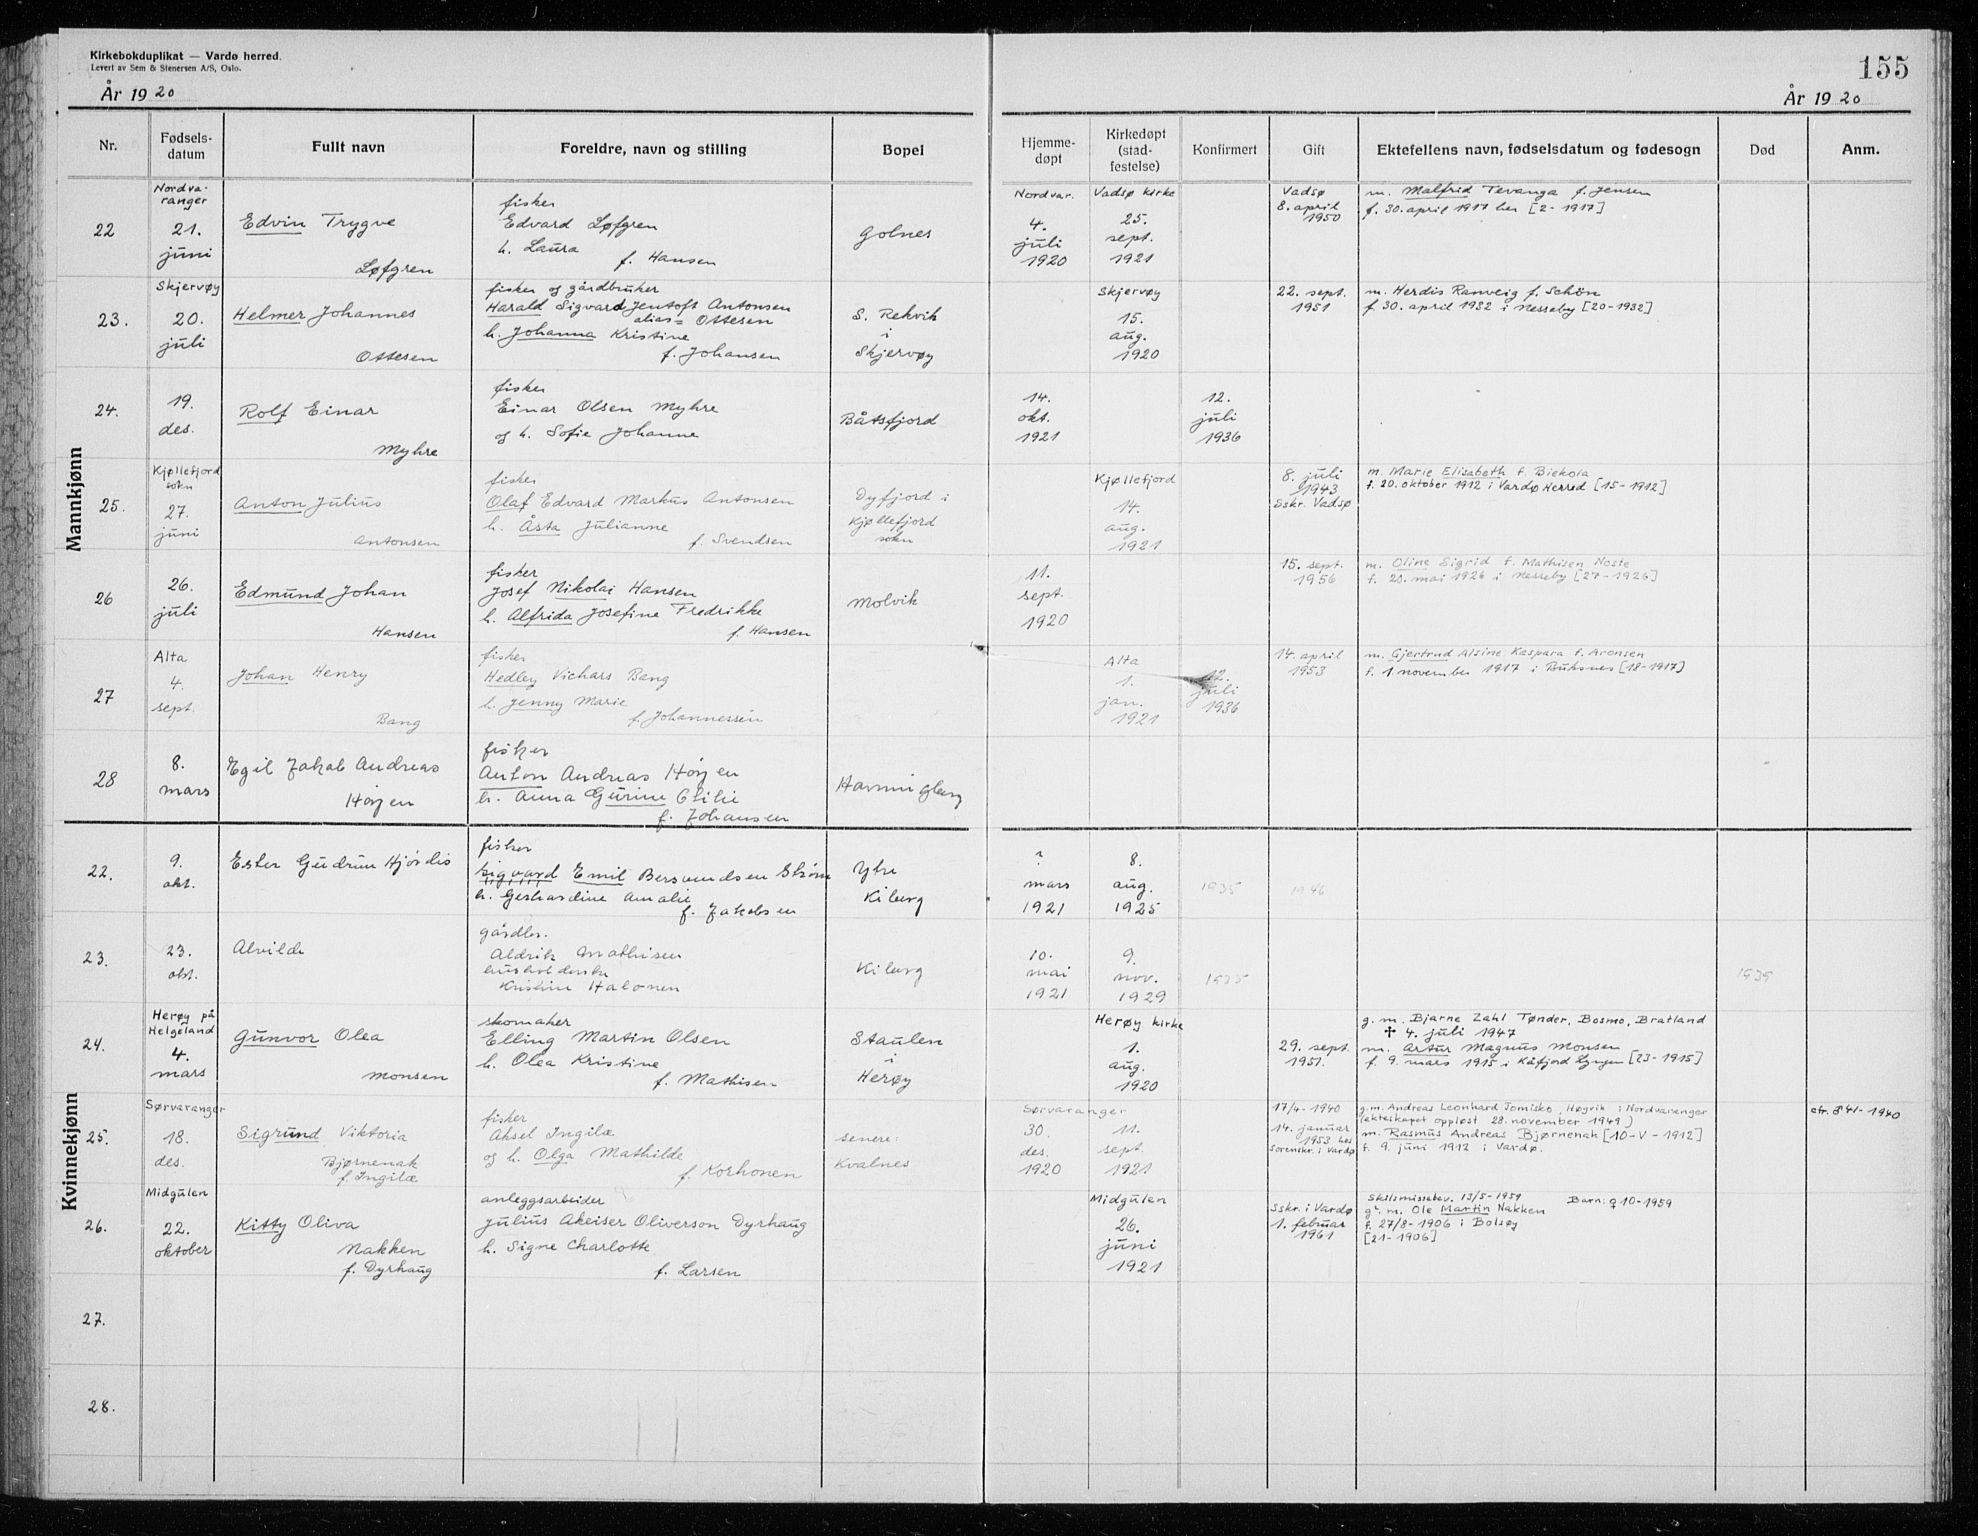 Kirkebokduplikat — Vardø herred.
Levert av Sem & Stenersen A/S, Oslo.
155
År 1920
År 1920
Nr.
Fødsels-
datum
Fullt navn
Foreldre, navn og stilling
Bopel
Hjemme-
døpt
Kirkedøpt
(stad-
festelse)
Konfirmert
Gift
Ektefellens navn, fødselsdatum og fødesogn
Død
Anm.
Mannkjønn
22
Nordva-
ranger
21.
juni
Edvin Trygve
Løfgren
fisker
Edvard Løfgren
h. Laura
f. Hansen
Golnes
Nordvar.
4.
juli
1920
Vadsø kirke
25.
sept.
1921
Vadsø
8. april
1950
m. Malfrid Tevanga f. Jensen
f. 30. april 1917 her [2-1917]
23.
Skjervøy
20.
juli
Helmer Johannes
Ottesen
fisker og gårdbruker
Harald Sigvard Jentoft Antonsen
alias = Ottesen
h. Johanna Kristine
f. Johansen
S. Rekvik
i
Skjervøy
Skjervøy
15.
aug.
1920
22. sept.
1951
m. Herdis Ranveig f. Schön
f. 30. april 1932 i Nesseby [20-1932]
24.
19.
des.
Rolf Einar
Myhre
fisker
Einar Olsen Myhre
og h. Sofie Johanne
Båtsfjord
14.
okt.
1921
12.
juli
1936
25.
Kjøllefjord
sokn
27.
juni
Anton Julius
Antonsen
fisker
Olaf Edvard Markus Antonsen
h. Åsta Julianne
f. Svendsen
Dyfjord i
Kjøllefjord
sokn
Kjøllefjord
14.
aug.
1921
8. juli
1943
Sskr. Vadsø
m. Marie Elisabeth f. Biekola
f. 20. oktober 1912 i Vardø Herred [15-1912]
26
26.
juli
Edmund Johan
Hansen
fisker
Josef Nikolai Hansen
h. Alfrida Josefine Fredrikke
f. Hansen
Molvik
11.
sept.
1920
15. sept.
1956
m. Oline Sigrid f. Mathisen Noste
f. 20. mai 1926 i Nesseby [27-1926]
27
Alta
4.
sept.
Johan Henry
Bang
fisker
Hedley Vichars Bang
h. Jenny Marie
f. Johannessen
Alta
1.
jan.
1921
12.
juli
1936
14. april
1953
m. Gjertrud Alsine Kaspara f. Aronsen
f. 1. november 1917 i Buksnes [18-1917]
28
8.
mars
Egil Jakob Andreas
Høyen
fisker
Anton Andreas Høyen
h. Anna Gurine
f. Johansen
Havningberg
Kvinnekjønn
22.
9.
okt.
Ester Gudrun Hjørdis
fisker
Sigvard Emil Bersvendsen Strøm
h. Gerhardine Amalie
f. Jakobsen
Ytre
Kiberg
?
mars
1921
8.
aug.
1925
1935
1946
23.
23.
okt.
Alvilde
gårdbr.
Aldrik Mathisen
husholderske
Kristine Halonen
Kiberg
10.
mai
1921
9.
nov.
1929
1935
1939
24.
Herøy på
Helgeland
4.
mars
Gunvor Olea
Monsen
skomaker
Elling Martin Olsen
h. Olea Kristine
f. Mathisen
Staulen
i
Herøy
Herøy kirke
1.
aug.
1920
29. sept.
1951.
g. m. Bjarne Zahl Tønder, Bosmo, Bratland
✝ 4. juli 1947
m. Artur Magnus Monsen
f. 9. mars 1915 i Kåfjord Lyngen [23-1915]
25.
Sørvaranger
18.
des.
Sigrund Viktoria
Bjørnenak
f. Ingilæ
fisker
Aksel Ingilæ
og h. Olga Mathilde
f. Korhonen
senere:
Kvalnes
Sørvaranger
30.
des.
1920
11.
sept.
1921
17/4-1940
14. januar
1953 hos
Sorenskr. i Vardø
g. m. Andreas Leonhard Jomisko, Høyvik i Nordvaranger
(ekteskapet oppløst 28. november 1949)
m. Rasmus Andreas Bjørnenak [10-V-1912]
f. 9. juni 1912 i Vardø.
cfr. ♂ 41-1940
26.
Midgulen
22.
oktober
Kitty Oliva
Nakken
f. Dyrhaug
anleggsarbeider
Julius Akeiser Oliverson Dyrhaug
h. Signe Charlotte
f. Larsen
Midgulen
26.
juni
1921
Sskr. i Vardø
1. februar
1961
Skilsmissebev. 13/5-1959
Barn: ♀ 10-1959
g. m. Ole Martin Nakken
f. 27/8-1906 i Bolsøy
[21-1906]
27.
28.